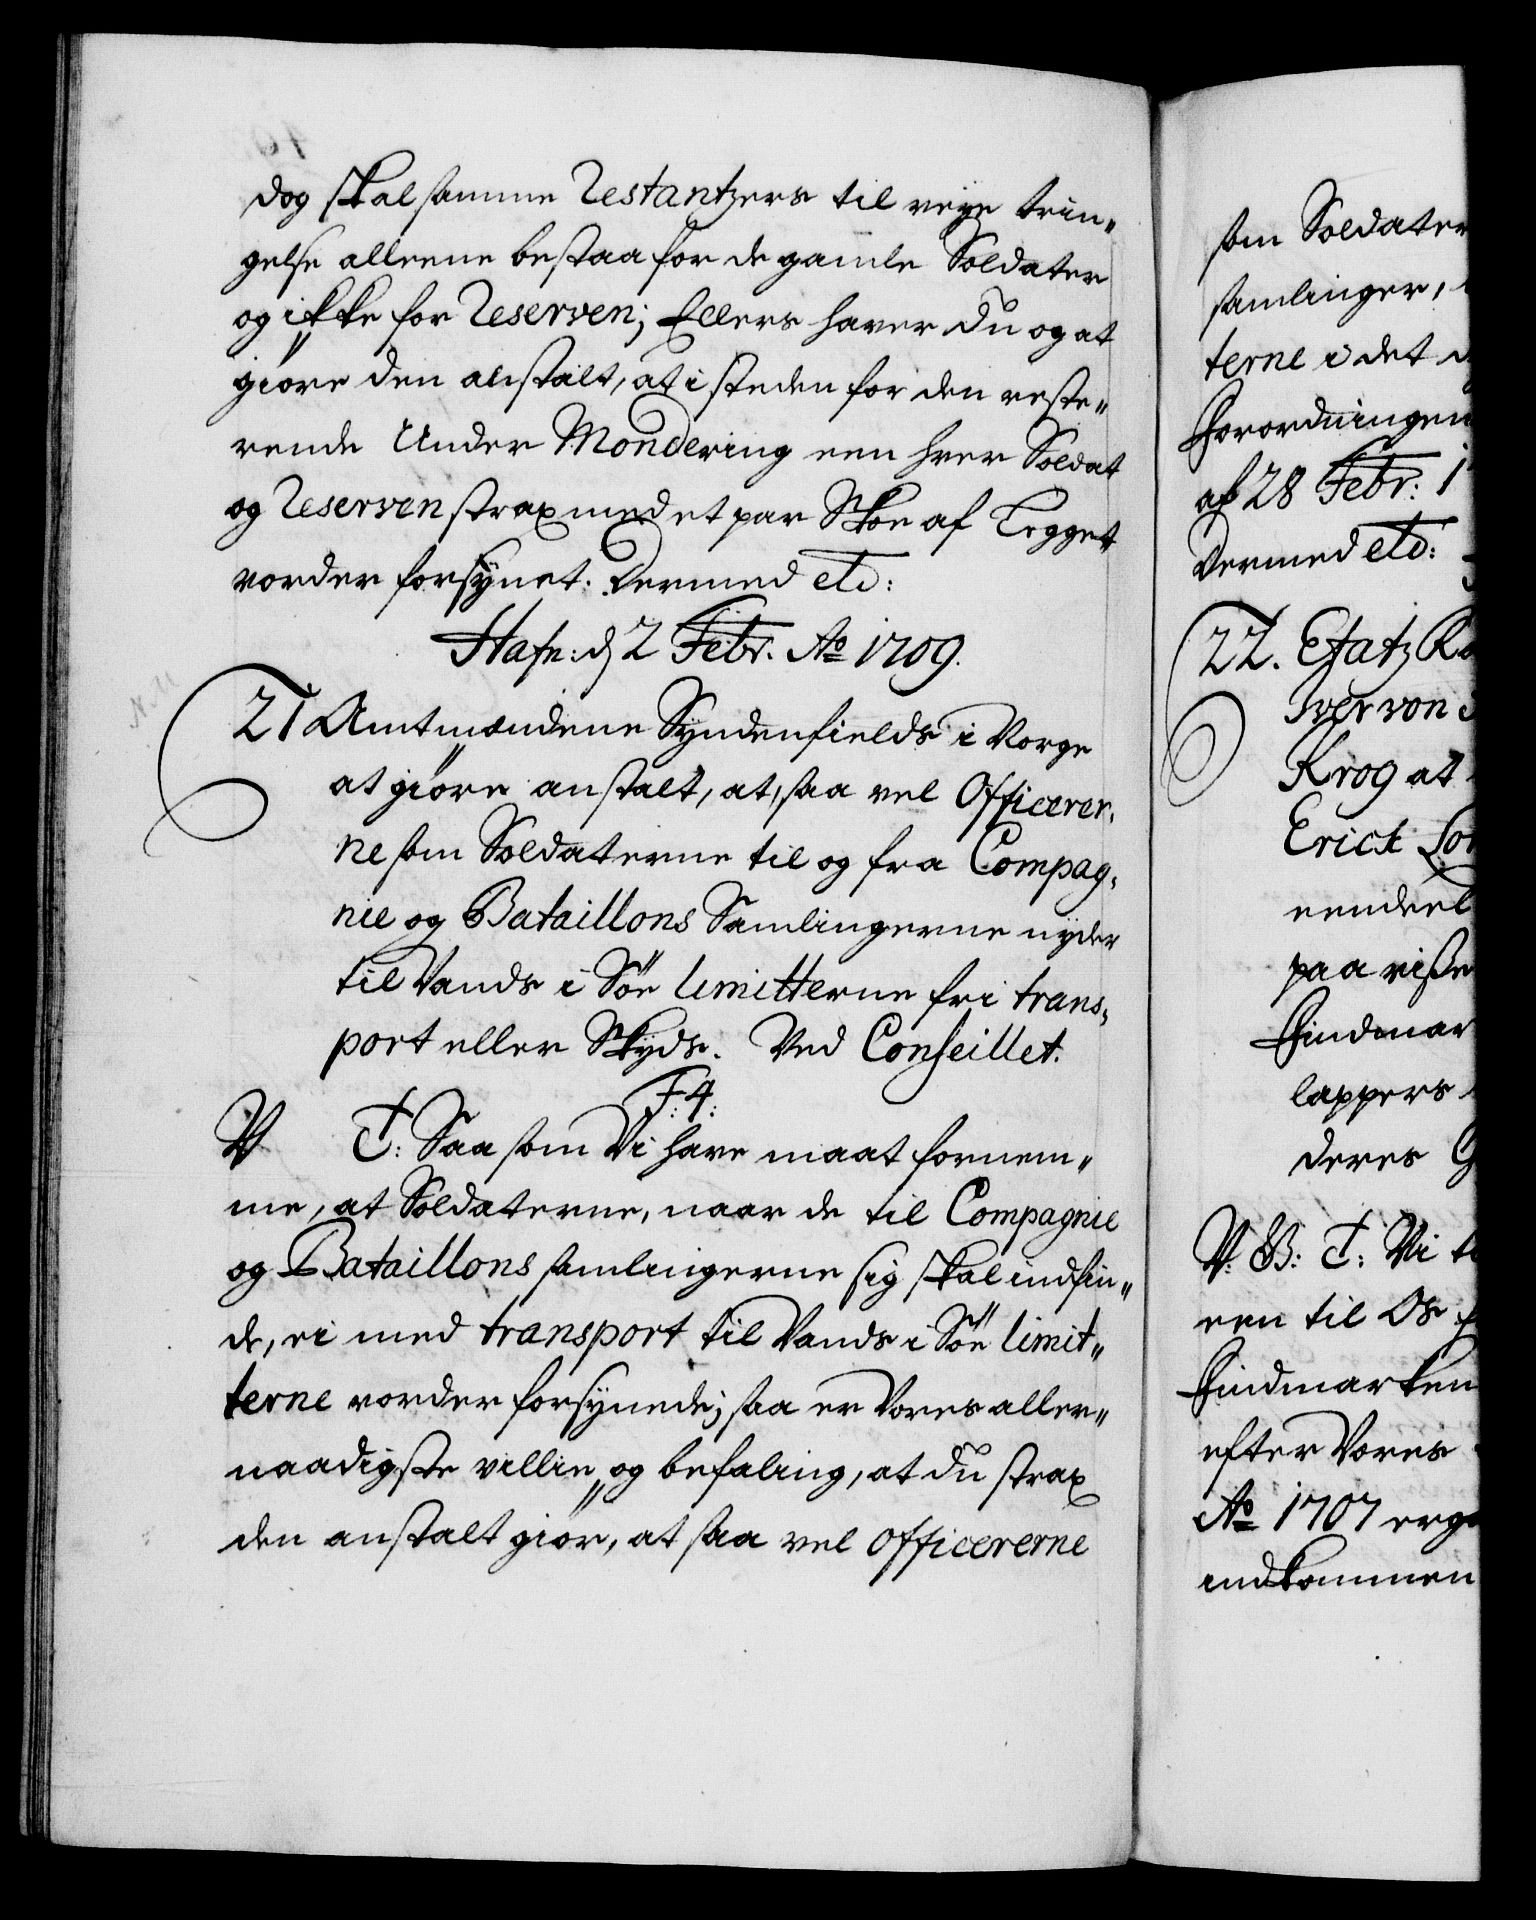 dog skal samme Restantzers til veye brin„
gelse alleene bestaa for de gamle Soldater
og ikke for Reserven; Ellers haver du og at
giøre den anstalt, at i steden for den reste„
rende Under Mondering een hver Soldat
og Reserven strax med et par Skoe af Legget
vorder forsynet. Dermed etc:
Hafn: d 2 Febr. Ao 1709.
21 Amtmændene Syndenfields i Norge
at giøre anstalt, at, saa vel Officerer,
ne som Soldaterne til og fra Compag,
nie og Bataillons Samlingerne nyder
til Vands i Söe limitterne fri trans,
port eller Skyds. Ved Conseillet.
F: 4:
V T: Saasom Vi have maat fornem„
me, at Soldaterne, naar de til Compagnie
og Bataillons samlingerne sig skal indfin„
de, ei med transport til Vands i Söe limit„
terne vorder forsynede; saa er Vores aller„
naadigste villie og befaling, at du strax
den anstalt giør, at saa vel officererne
som Soldater
samlinger,
terne i det
Forordningen
af 28 Febr: 1
Dermed etc:
22. Etatz
Iver von
Krog at
Erick
eendeel
paa visse
Findmar
lappers
deres
V: B: T: Vi
een til Os
Findmarken
efter Vores
Ao 1707
indkommen